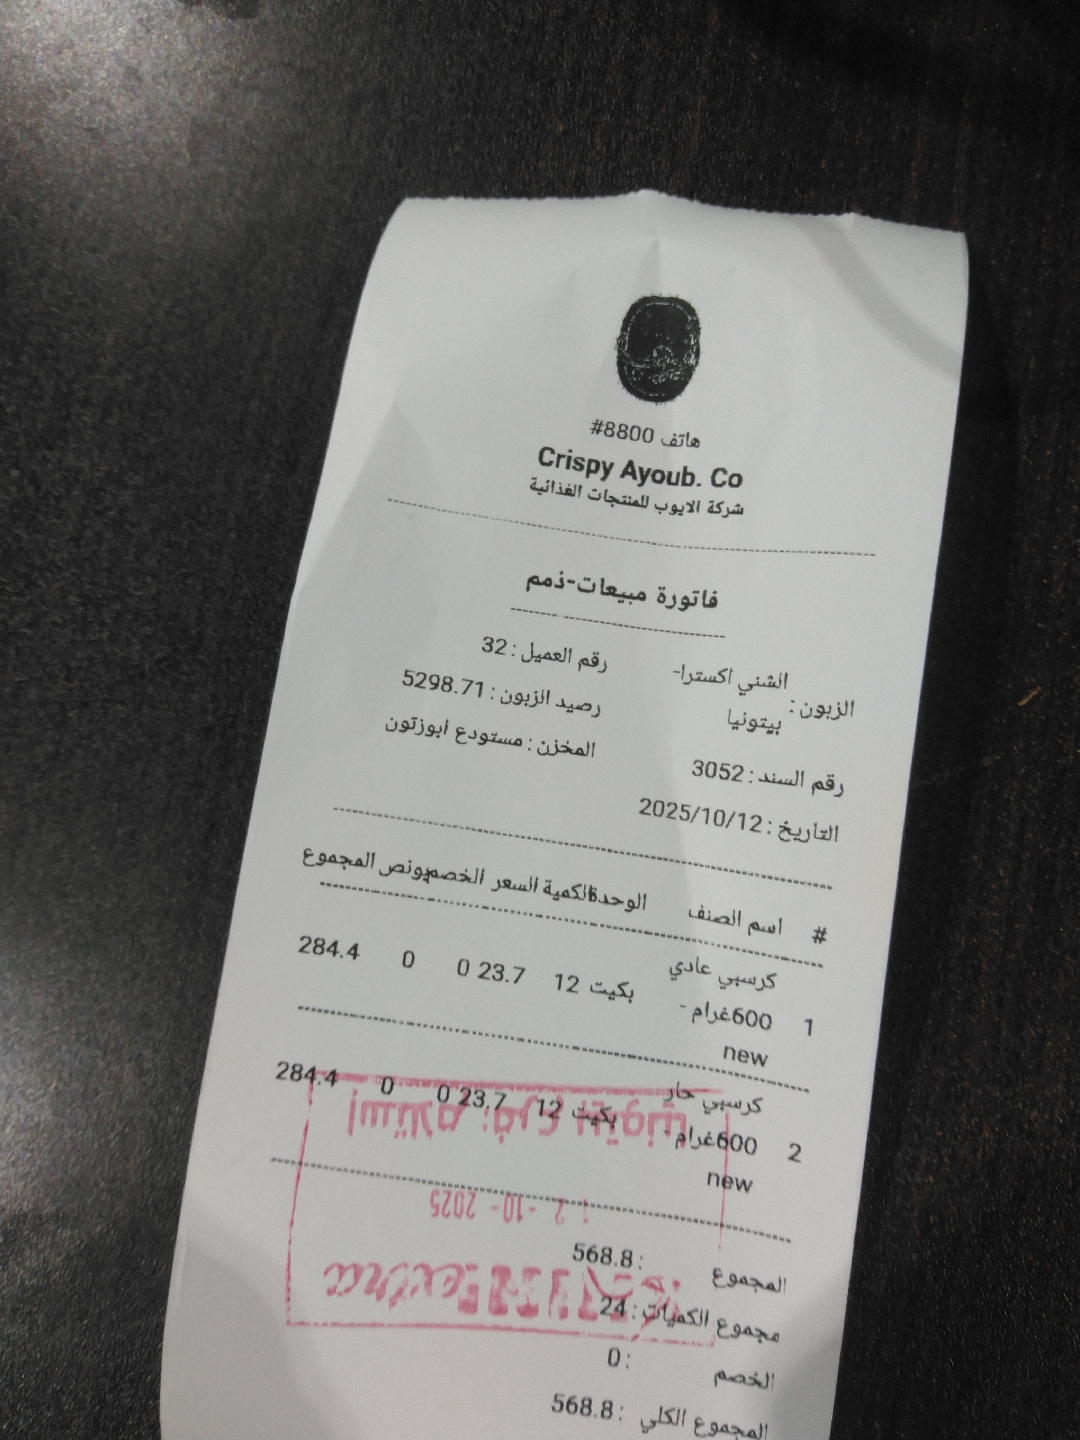 هاتف 8800#
Crispy Ayoub. Co
شركة الايوب للمنتجات الغذائية
فاتورة مبيعات-ذمم
الزبون: الشني اكسترا-بيتونيا
رقم العميل: 32
رصيد الزبون: 5298.71
المخزن: مستودع ابوزتون
رقم السند: 3052
التاريخ: 2025/10/12
# اسم الصنف الوحدة الكمية السعر الخصم بونص المجموع
1 كرسبي عادي 600غرام - new بكيت 12 23.7 0 0 284.4
2 كرسبي حار 600غرام - new بكيت 12 23.7 0 0 284.4
إستلام: فرع بيتونيا
12 -10- 2025
extra
المجموع : 568.8
مجموع الكميات: 24
الخصم : 0
المجموع الكلي : 568.8